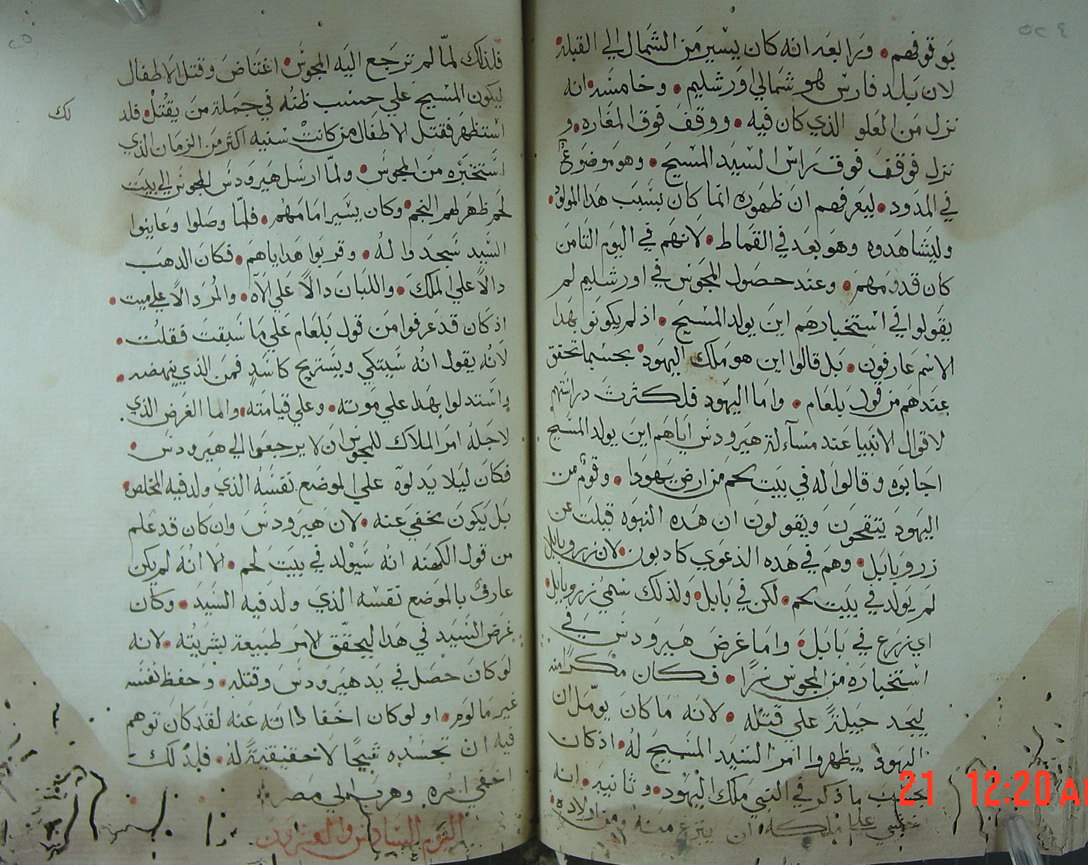 بوقوفهم • ورابعه انه كان يسير من الشمال الي القبلة •
لان بلد فارس هو شمالي اورشليم • وخامسه انه
نزل من العلو الذي كان فيه • ووقف فوق المغاره • و
نزل فوقف فوق راس السيد المسيح • وهو موضوع
في المدود • ليعرفهم ان ظهوره انما كان بسبب هدا المولود •
وليشاهدوه وهو بعد في القماط • لانهم في اليوم الثامن
كان قدومهم • وعند حصول المجوس في اورشليم لم
يقولوا في استخبارهم اين يولد المسيح • اذ لم يكونو بهدا
الاسم عارفون • بل قالوا اين هو ملك اليهود • بحسبما تحقق
عندهم من قول بلعام • واما اليهود فلكثرت دراستهم
لاقوال الانبيا عند مسآلة هيرودس اياهم اين يولد المسيح
اجابوه وقالوا له في بيت لحم من ارض يهودا • وقوم من
اليهود يتقحوت ويقولون ان هده النبوه قيلت عن
زروبابل • وهم في هده الدعوي كادبون • لان زروبابل
لم يولد في بيت لحم • لكن في بابل • ولذلك سمي زروبابل •
اي زرع في بابل • واما غرض هيرودس في
استخباره من المجوس سراً • فكان مكراً منه
ليجد حيلةً علي قتله • لانه ما كان يومل ان
اليهود يظهروا امر السيد المسيح له • اذ كان
بحسب ما ذكر في النبي ملك اليهود • وثانيه انه
خشي علي ملكه ان ينزع منه ومن اولاده •
فلذلك لما لم ترجع اليه المجوس • اغتاض وقتل الاطفال
ليكون المسيح علي حسب ظنه في جملة من يقتل • فلد
لك
استظهر فقتل الاطفال من كانت سنيه اكثر من الزمان الذي
استخبره من المجوس • ولما ارسل هيرودس المجوس الي بيت
لحم ظهر لهم النجم • وكان يسير امامهم • فلما وصلوا وعاينوا
السيد سجدوا له • وقربوا هداياهم • فكان الدهب
دالاً علي الملك • واللبان دالاً علي لآه • والمر دالاً علي ميت •
اذ كان قد عرفوا من قول بلعام علي ما سبقت فقلت •
لانه يقول انه سيتكي ويستريح كاسد فمن الذي ينهضه •
واستدلوا بهدا علي موته • وعلي قيامته • واما الغرض الذي
لاجله امر الملاك للمجوس ان لا يرجعوا الي هيرودس •
فكان ليلا يدلوه علي الموضع نفسه الذي ولد فيه المخلص •
بل يكون مخفي عنه • لان هيرودس وان كان قد علم
من قول الكهنه انه سيولد في بيت لحم • الا انه لم يكن
عارف بالموضع نفسه الذي ولد فيه السيد • وكان
غرض السيد في هدا ليحقق لامر طبيعة بشريته • لانه
لو كان حصل في يد هيرودس وقتله • وحفظ نفسه
غير مالوم • اولو كان اخفا ذاته عنه لقد كان توهم
فيه ان تجسده قبيحا لا حقيقيةً له • فلدلك
اخفي امره وهرب الي مصر
اليوم السادس والعشرون
21 12:20 A